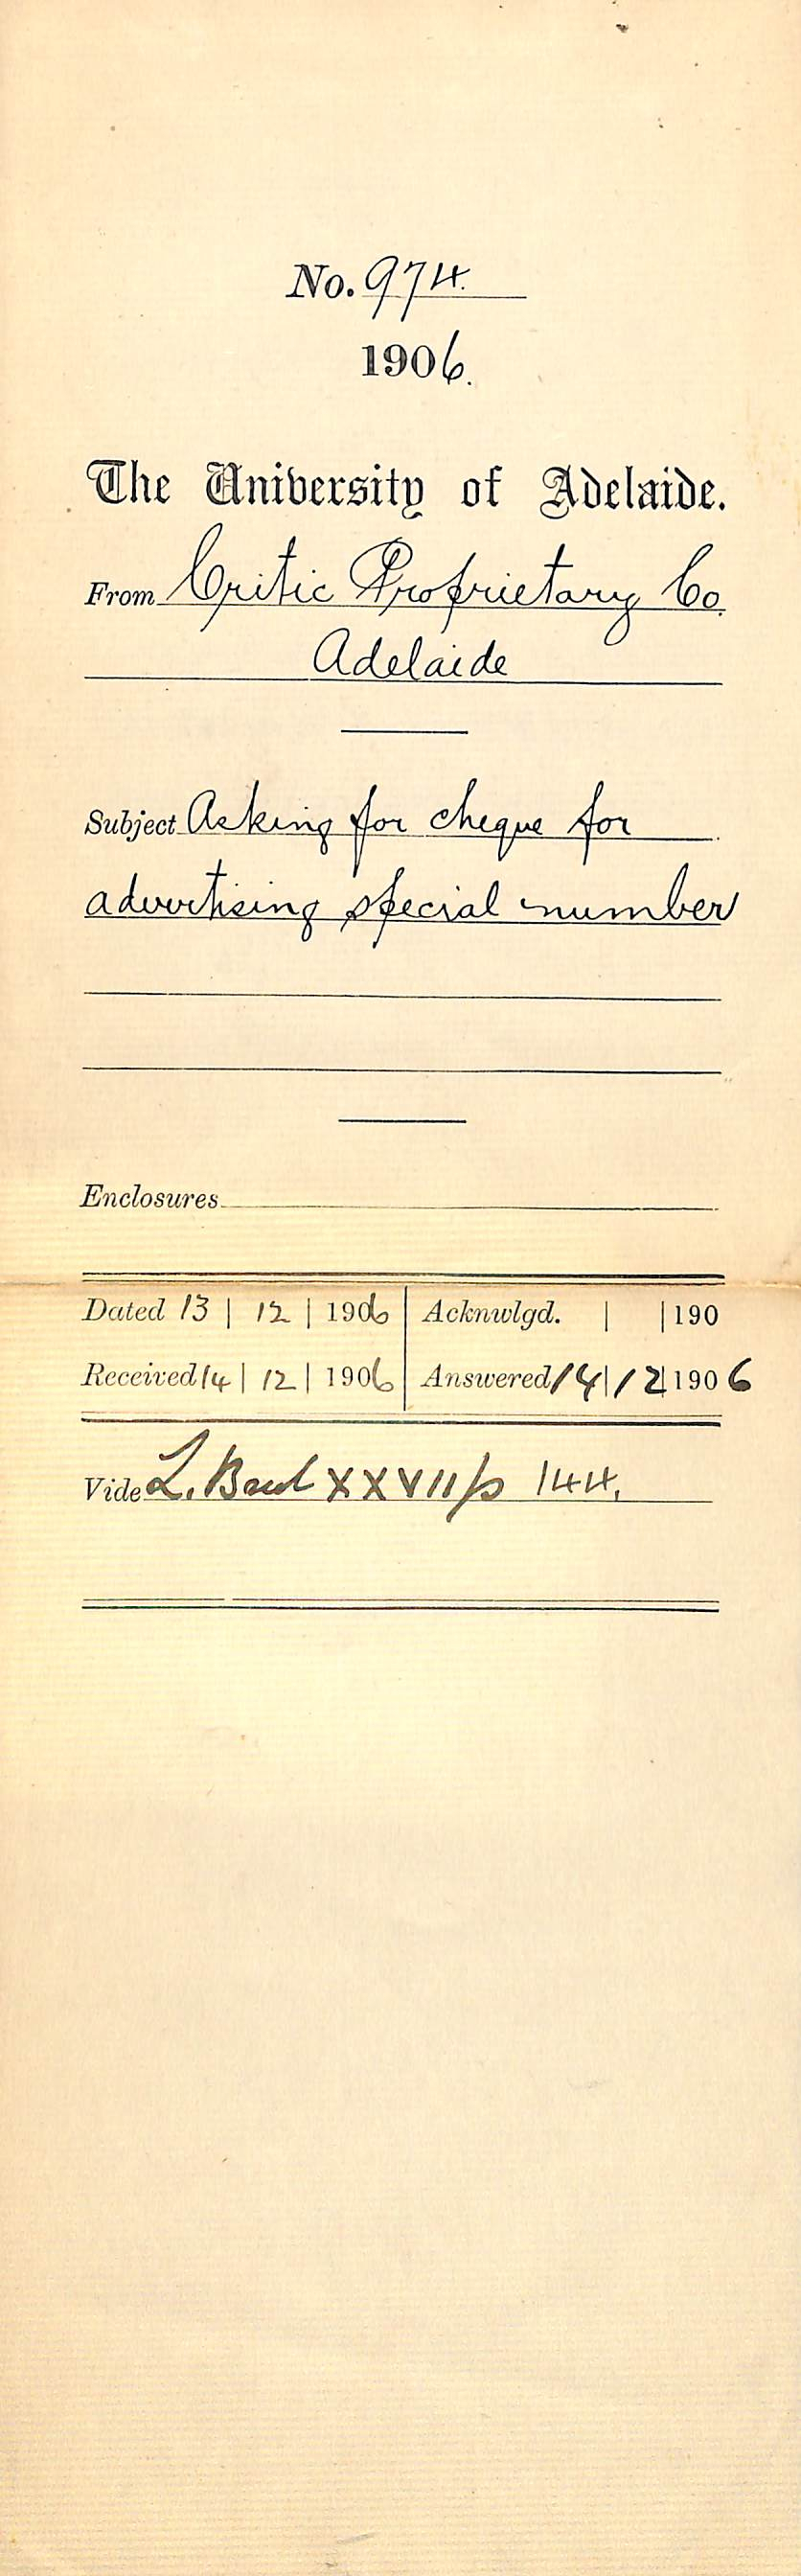 No. 974.
1906.
The University of Adelaide.
From Critic Proprietary Co.
Adelaide
Subject Asking for cheque for
advertising special number
Enclosures
Dated 13 | 12 | 1906 Acknwlgd. | | 190
Received 14 | 12 | 1906 Answered 14 | 12 | 1906
Vide L. Book XXVII p 144.